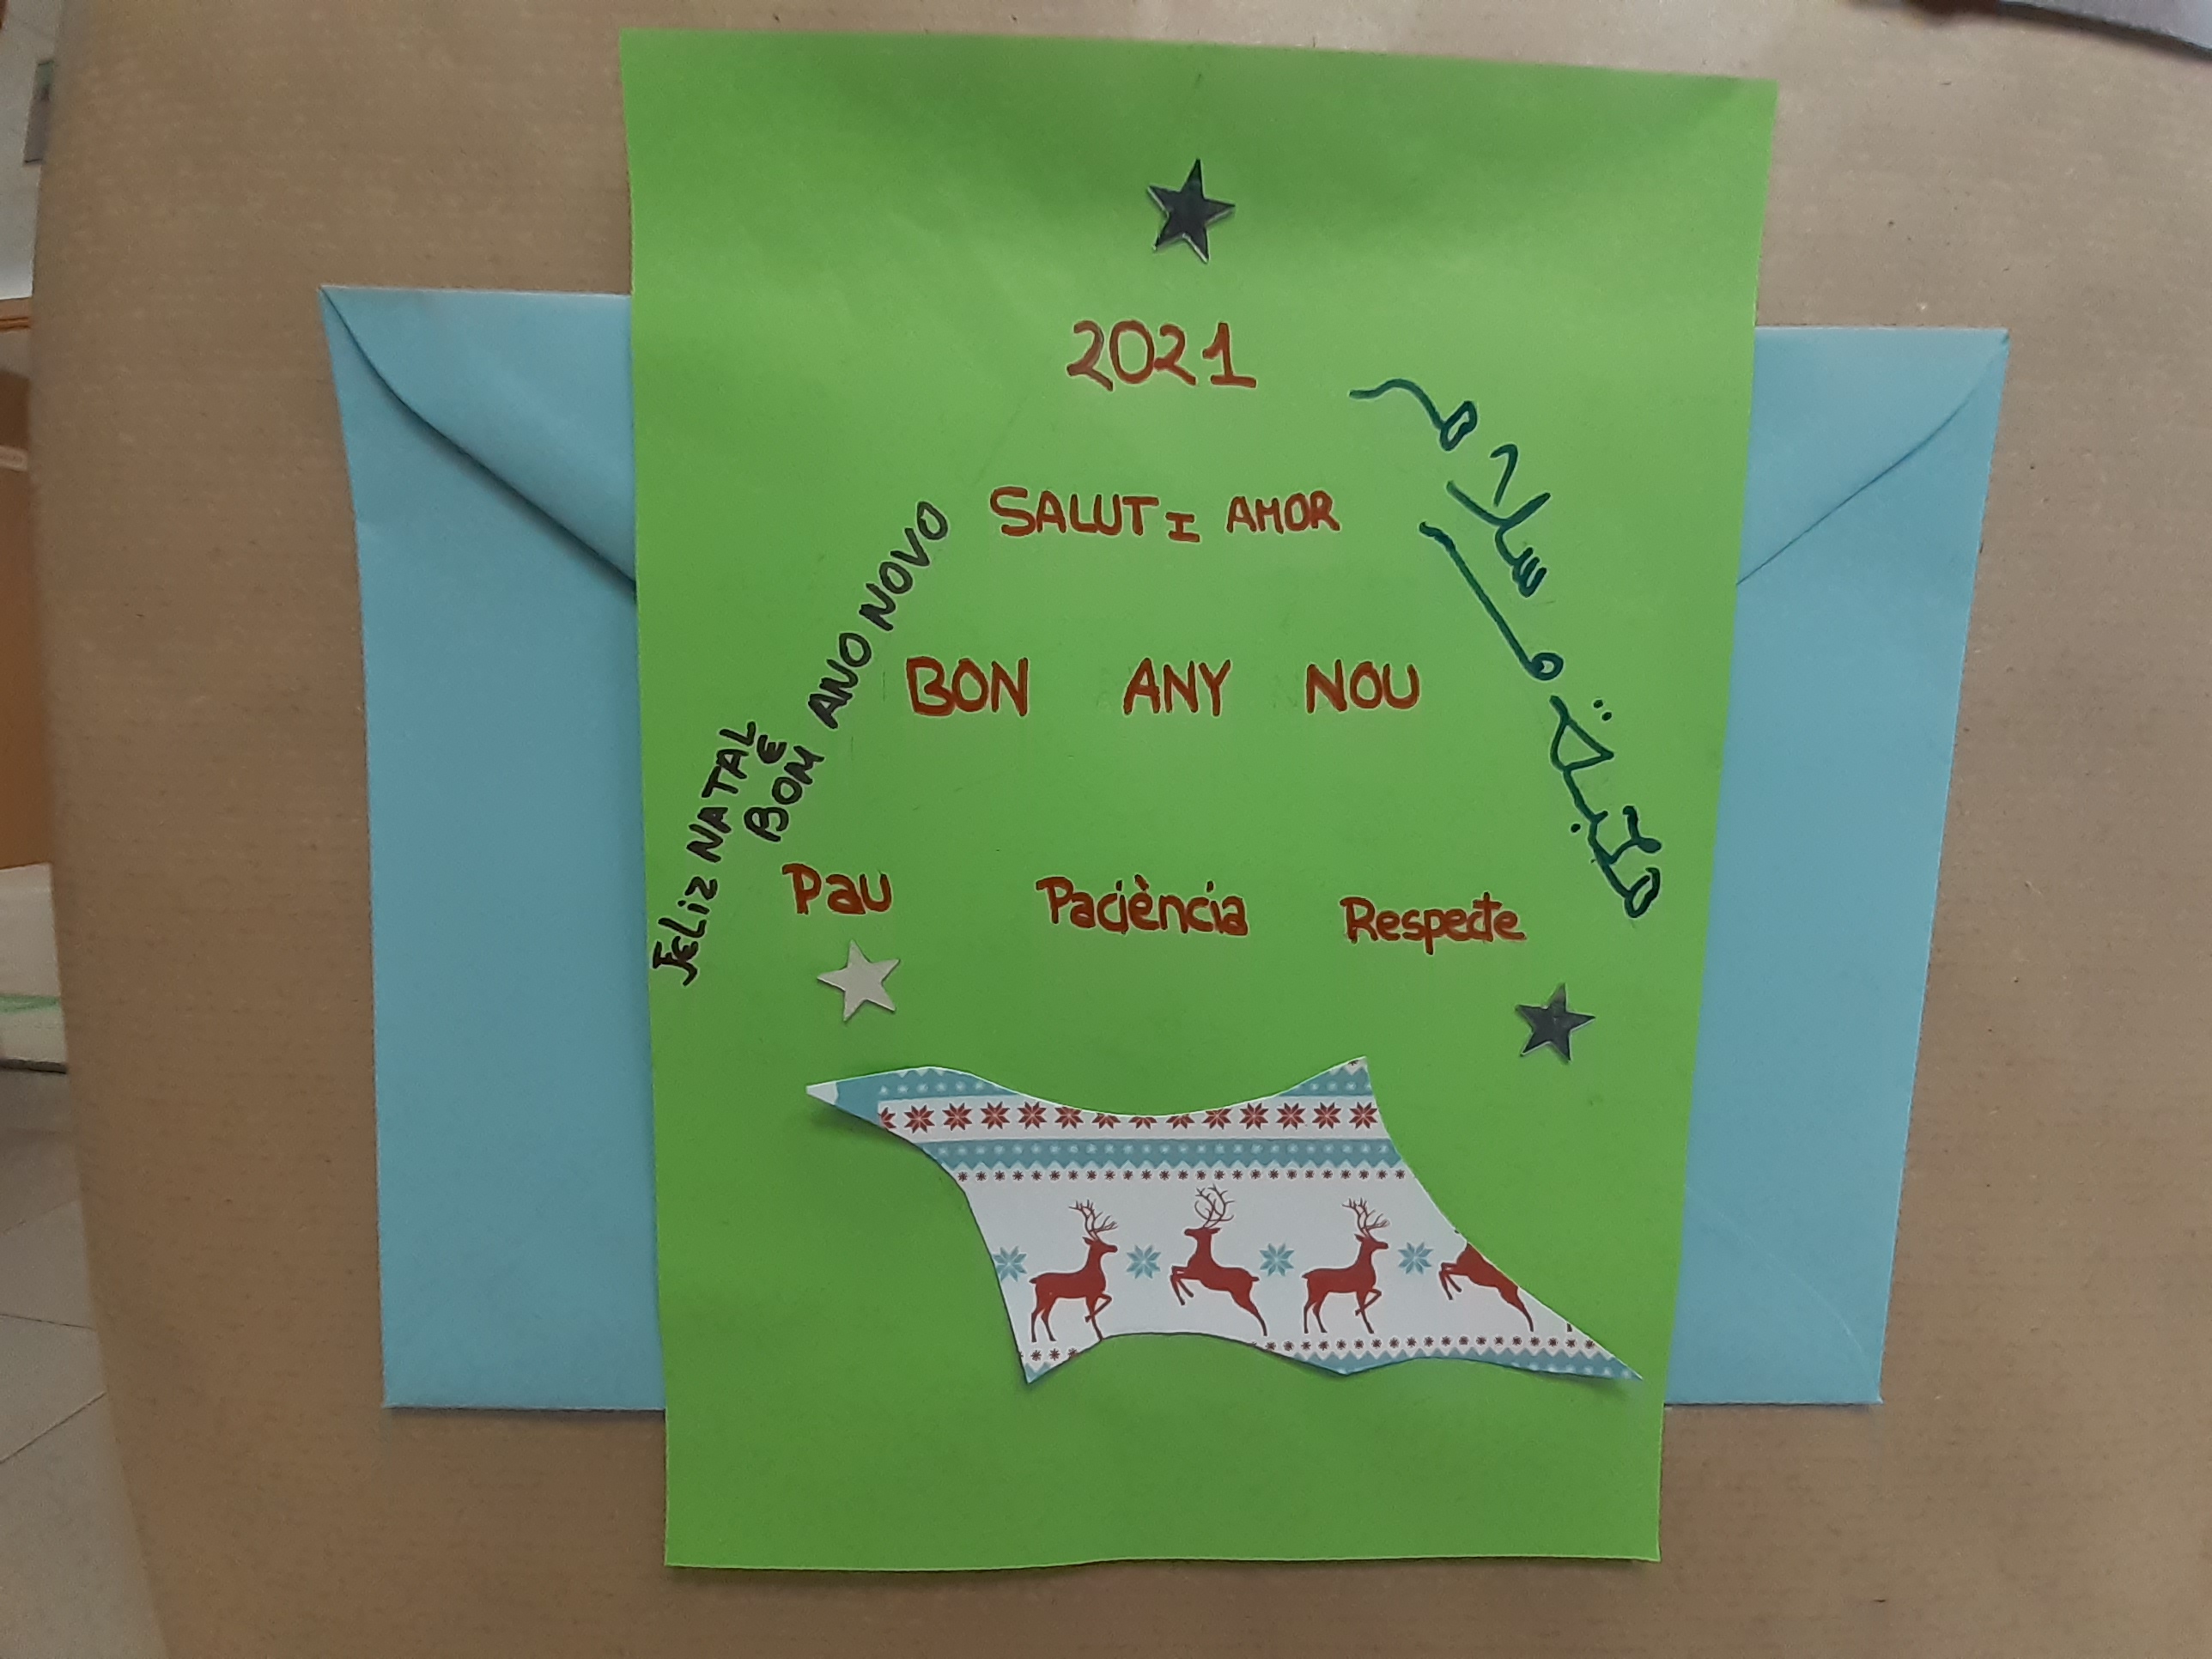 2021
SALUT I AMOR
BON ANY NOU
Pau Paciència Respecte
FELIZ NATAL
E
BOM ANO NOVO
محبة و سلام